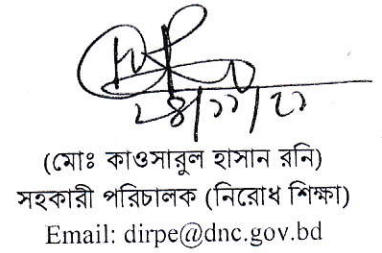 ২৪/১১/২২
(মোঃ কাওসারুল হাসান রনি)
সহকারী পরিচালক (নিরোধ শিক্ষা)
Email: dirpe@dnc.gov.bd